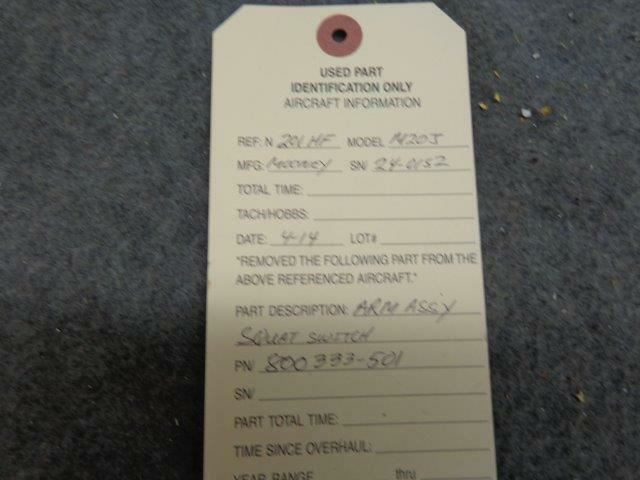 USED PART
IDENTIFICATION ONLY
AIRCRAFT INFORMATION
REF: N 201HF MODEL M20J
MFG: MOONEY SN/ 24-0152
TOTAL TIME:
TACH/HOBBS:
DATE: 4-14 LOT#
"REMOVED THE FOLLOWING PART FROM THE
ABOVE REFERENCED AIRCRAFT."
PART DESCRIPTION: ARM ASSY
SQUAT SWITCH
PN/ 800333-501
SN/
PART TOTAL TIME:
TIME SINCE OVERHAUL:
YEAR RANGE thru